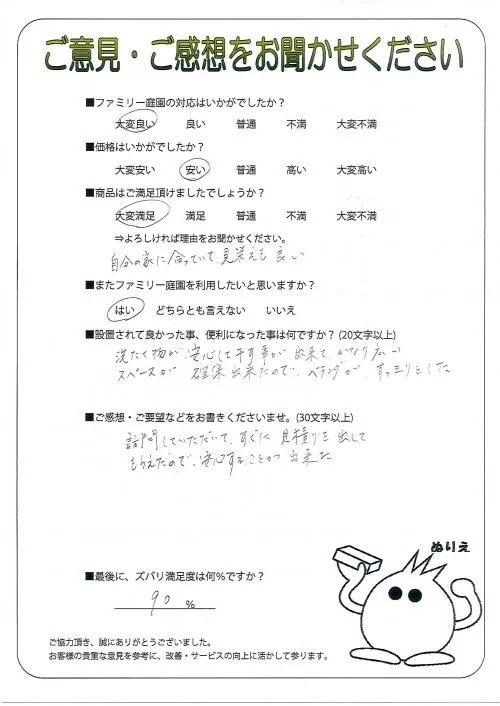 ご意見・ご感想をお聞かせください
■ファミリー庭園の対応はいかがでしたか？
大変良い 良い 普通 不満 大変不満
■価格はいかがでしたか？
大変安い 安い 普通 高い 大変高い
■商品はご満足頂けましたでしょうか？
大変満足 満足 普通 不満 大変不満
⇒よろしければ理由をお聞かせください。
自分の家に合っていて、見栄えも良い
■またファミリー庭園を利用したいと思いますか？
はい どちらとも言えない いいえ
■設置されて良かった事、便利になった事は何ですか？(20文字以上)
洗たく物が、安心して干す事が出来て、かなり広い
スペースが 確保出来たので、ベランダが、すっきりとした
■ご感想・ご要望などをお書きくださいませ。(30文字以上)
訪問していただいて、すぐに 見積りを出して
もらえたので、安心することが出来た
ぬりえ
■最後に、ズバリ満足度は何%ですか？
90 %
ご協力頂き、誠にありがとうございました。
お客様の貴重な意見を参考に、改善・サービスの向上に活かして参ります。